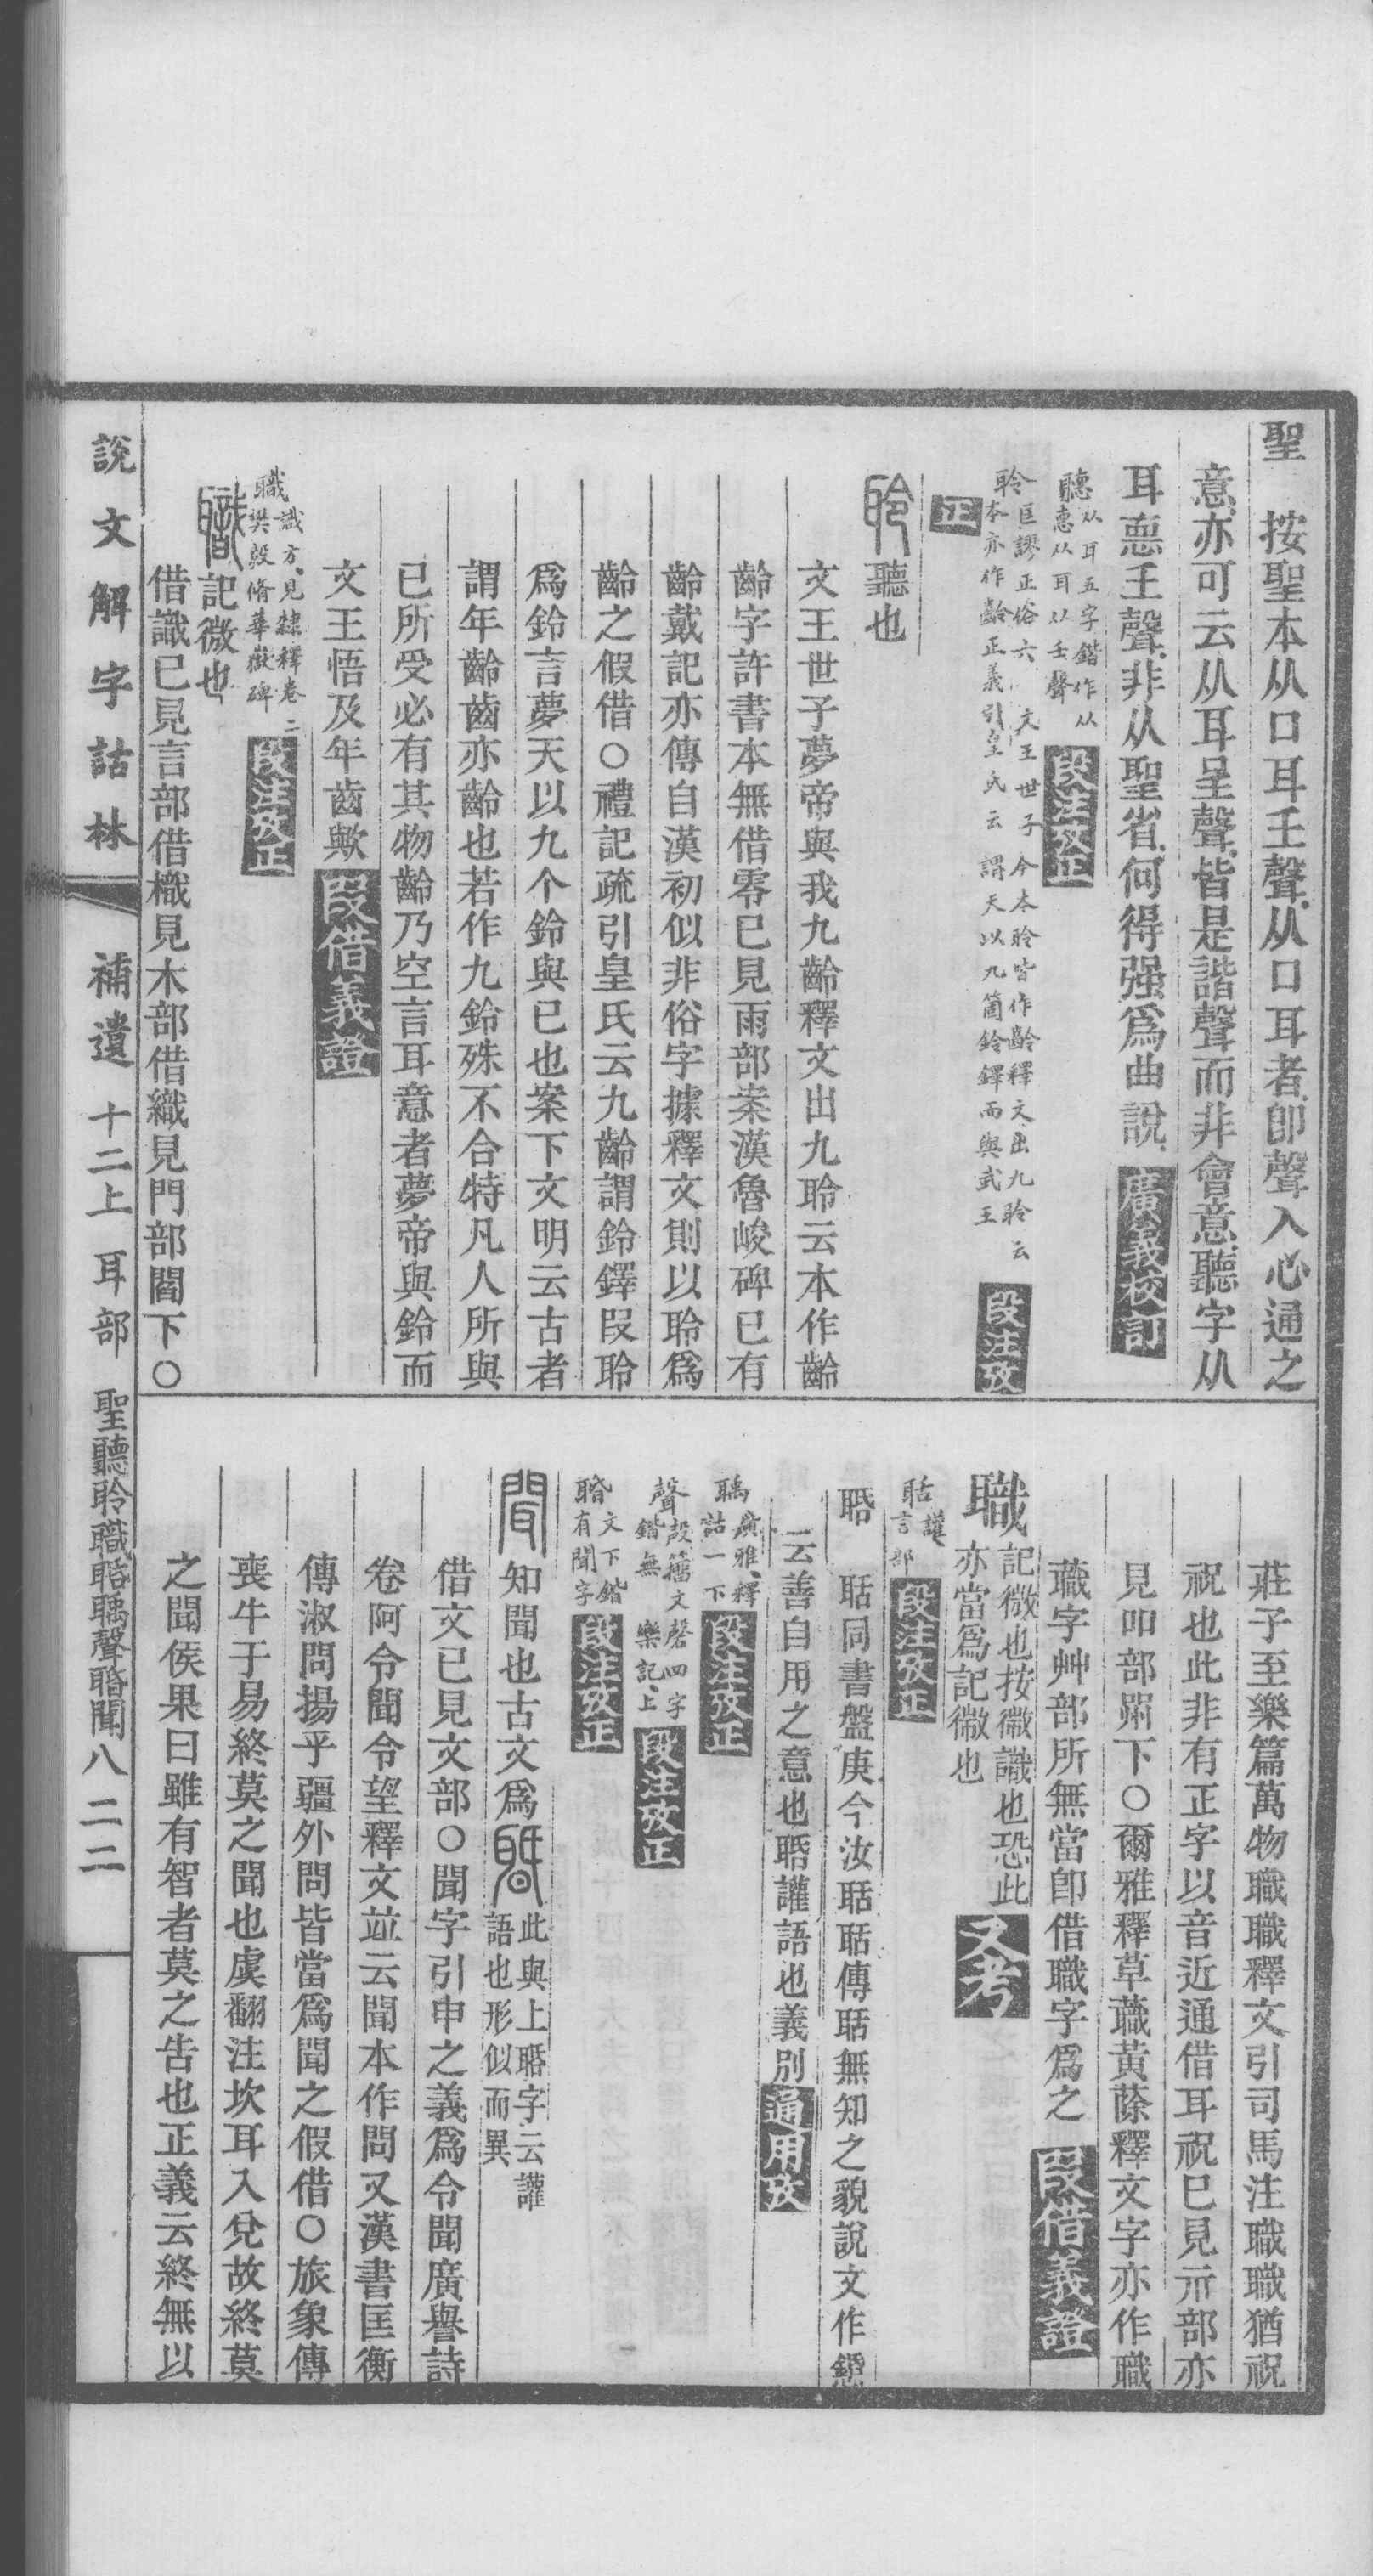 聖　按聖本从口耳𡈼聲、从口耳者、卽聲入心通之
意、亦可云从耳呈聲、皆是諧聲而非會意、聽字从
耳悳𡈼聲、非从聖省、何得强爲曲說、廣義校訂
聽从耳五字鍇作从
悳从耳以𡈼聲
段注攷正
聆匡謬正俗六、文王世子今本聆皆作齡釋文出九聆云
本亦作齡正義引皇氏云謂天以九箇鈴鐸而與武王
段注攷
正
聆聽也
文王世子夢帝與我九齡釋文出九聆云本作齡
齡字許書本無借零已見雨部案漢魯峻碑已有
齡戴記亦傳自漢初似非俗字據釋文則以聆爲
齡之假借○禮記疏引皇氏云九齡謂鈴鐸叚聆
爲鈴言夢天以九个鈴與已也案下文明云古者
謂年齡齒亦齡也若作九鈴殊不合特凡人所與
已所受必有其物齡乃空言耳意者夢帝與鈴而
文王悟及年齒歟段借義證
職識方、見隸釋卷二
樊毅脩華嶽碑
段注攷正
職記微也
借識已見言部借樴見木部借織見門部閻下○
莊子至樂篇萬物職職釋文引司馬注職職猶祝
祝也此非有正字以音近通借耳祝已見示部亦
見吅部喌下○爾雅釋草蘵黃蒢釋文字亦作職
蘵字艸部所無當卽借職字爲之段借義證
職記微也按徽識也恐此
亦當爲記徽也
又考
聒讙
言部
段注攷正
㗭　聒同書盤庚今汝聒聒傳聒無知之貌說文作㗭
云善自用之意也㗭讙語也義別通用攷
聥廣雅、釋
詁一下
段注攷正
聲殸籒文磬四字
鍇無　樂記、上
段注攷正
聞文下鍇
有聞字
段注攷正
聞知聞也古文爲䎽此與上㗭字云讙
語也形似而異
借文已見文部○聞字引申之義爲令聞廣譽詩
卷阿令聞令望釋文竝云聞本作問又漢書匡衡
傳淑問揚乎疆外問皆當爲聞之假借○旅象傳
喪牛于易終莫之聞也虞翻注坎耳入兌故終莫
之聞侯果曰雖有智者莫之告也正義云終無以
說文解字詁林　補遺　十二上　耳部　聖聽聆職㗭聥聲聞　八二二